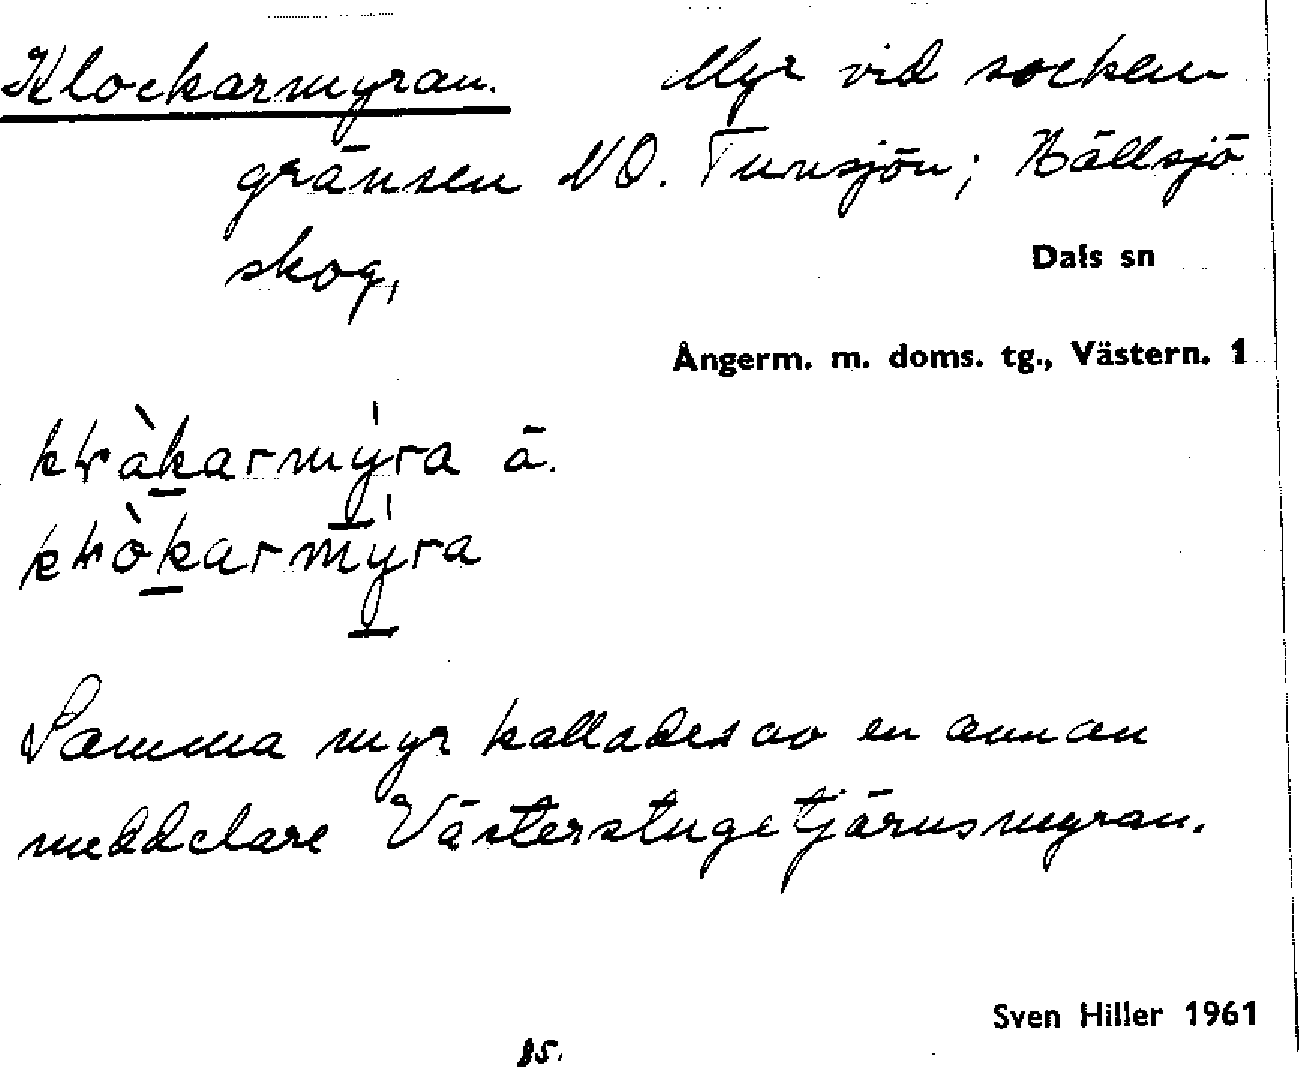 Klockarmyran. Myr vid socken
gränsen NO. Tunsjön; Hällsjö
skog,
Dals sn
Ångerm. m. doms. tg., Västern. 1
à.
Samma myr kallades av en annan
meddelare Västerstugetjärnsmyran.
Sven Hiller 1961
85.